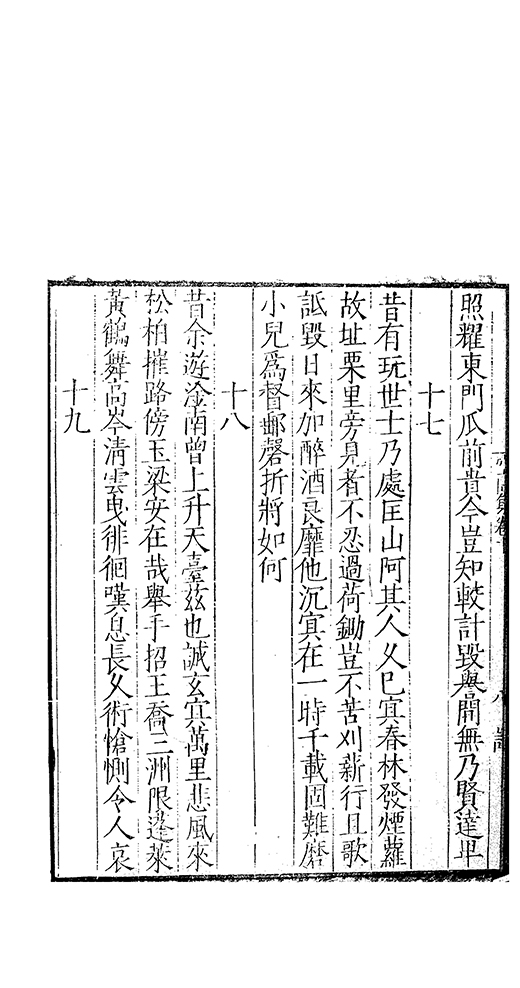 照耀東門瓜前貴今豈知較計毀譽間無乃賢達卑
十七
昔有玩世士乃處匡山阿其人久巳㝠春林發煙蘿
故址栗里旁見者不忍過荷鋤豈不苦刈薪行且歌
詆毀日來加醉酒良靡他沉㝠在一時千載固難磨
小兒爲督郵磬折將如何
十八
昔余遊淦南曽上升天臺茲也誠玄㝠萬里悲風來
松柏摧路傍玉梁安在哉舉手招王喬三洲限蓬萊
黃鶴舞高岑清雲曳徘徊嘆息長久術愴惻令人哀
十九